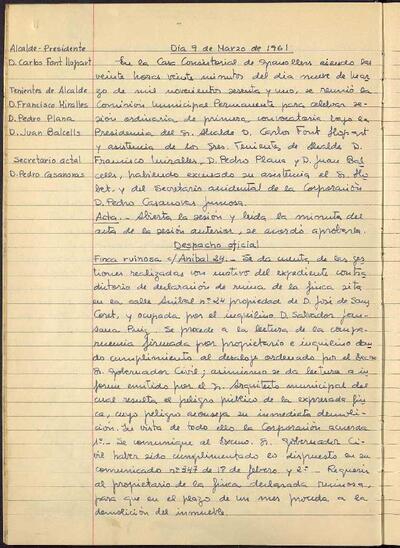 Alcalde-Presidente
D. Carlos Font Llopart
Tenientes de Alcalde
D. Francisco Miralles
D. Pedro Plana
D. Juan Balcells
Secretario actal
D. Pedro Casanovas
Día 9 de Marzo de 1961
En la Casa Consistorial de Granollers siendo las
veinte horas veinte minutos del día nueve de mar-
zo de mil novecientos sesenta y uno, se reunió la
Comisión Municipal Permanente para celebrar se-
sión ordinaria de primera convocatoria bajo la
Presidencia del Sr. Alcalde D. Carlos Font Llopart
y asistencia de los Sres. Teniente de Alcalde D.
Francisco Miralles, D. Pedro Plana y D. Juan Bal-
cells, habiendo excusado su asistencia el Sr. Llo-
bet, y del Secretario accidental de la Corporación
D. Pedro Casanovas Junosa.
Acta.- Abierta la sesión y leída la minuta del
acta de la sesión anterior, se acordó aprobarla.
Despacho oficial
Finca ruinosa c/Anibal 24.- Se da cuenta de las ges-
tiones realizadas con motivo del expediente contra-
dictorio de declaración de ruina de la finca sita
en la calle Anibal nº 24 propiedad de D. José de Sany
Coret, y ocupada por el inquilino D. Salvador
Ruiz. Se procede a la lectura de la compa-
recencia firmada por propietario e inquilino dan-
do cumplimiento al desalojo ordenado por el Excmo
Sr. Gobernador Civil; asimismo se da lectura a in-
forme emitido por el Sr. Arquitecto municipal del
cual resulta el peligro público de la expresada fin-
ca, cuyo peligro aconseja su inmediata demoli-
ción. En vista de todo ello la Corporación acuerda
1º.- Se comunique al Excmo. Sr. Gobernador Ci-
vil haber sido cumplimentado lo dispuesto en su
comunicado nº 547 de 1º de febrero, y 2º.- Requerir
al propietario de la finca declarada ruinosa,
para que en el plazo de un mes proceda a la
demolición del inmueble.